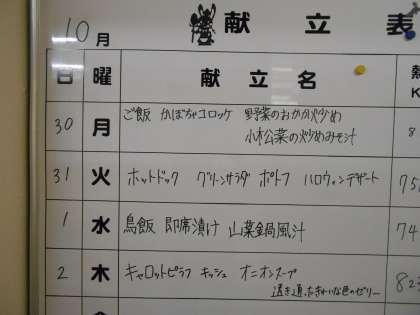 10月 献立表
日 曜 献立名 熱
K
30 月 ご飯 かぼちゃコロッケ 野菜のおかか炒め 8
小松菜の炒めみそ汁
31 火 ホットドック グリーンサラダ ポトフ ハロウィンデザート 75
1 水 鳥飯 即席漬け 山菜鍋風汁 74
2 木 キャロットピラフ キッシュ オニオンスープ 82
透き通ったきれいな色のゼリー